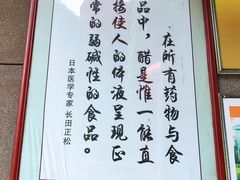 在所有药物与食
品中，醋是惟一能直
接使人的体液呈现正
常的弱碱性的食品。
日本医学专家 长田正松